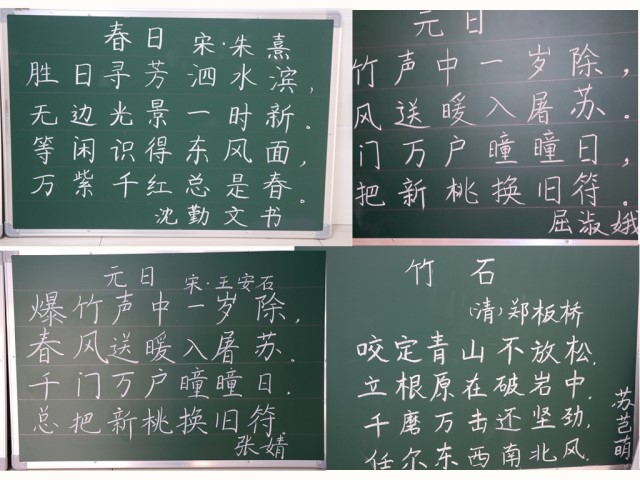 春日 宋·朱熹
胜日寻芳泗水滨，
无边光景一时新。
等闲识得东风面，
万紫千红总是春。
沈勤文书
元日
竹声中一岁除，
风送暖入屠苏。
门万户曈曈日，
把新桃换旧符。
屈淑娥
元日 宋·王安石
爆竹声中一岁除，
春风送暖入屠苏.
千门万户曈曈日.
总把新桃换旧符.
张婧
竹石
（清）郑板桥
咬定青山不放松.
立根原在破岩中.
千磨万击还坚劲,
任尔东西南北风.
苏芑萌